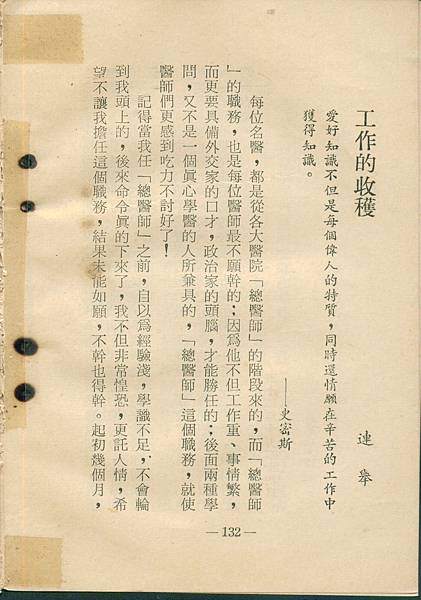 工作的收穫
連舉
愛好知識不但是每個偉人的特質，同時還情願在辛苦的工作中
獲得知識。
——史密斯
每位名醫，都是從各大醫院「總醫師」的階段來的，而「總醫師
」的職務，也是每位醫師最不願幹的；因爲他不但工作重、事情繁，
而更要具備外交家的口才，政治家的頭腦，才能勝任的；後面兩種學
問，又不是一個眞心學醫的人所兼具的，「總醫師」這個職務，就使
醫師們更感到吃力不討好了！
記得當我任「總醫師」之前，自以爲經驗淺，學識不足，不會輪
到我頭上的，後來命令眞的下來了，我不但非常惶恐，更託人情，希
望不讓我擔任這個職務，結果未能如願，不幹也得幹。起初幾個月，
—132—